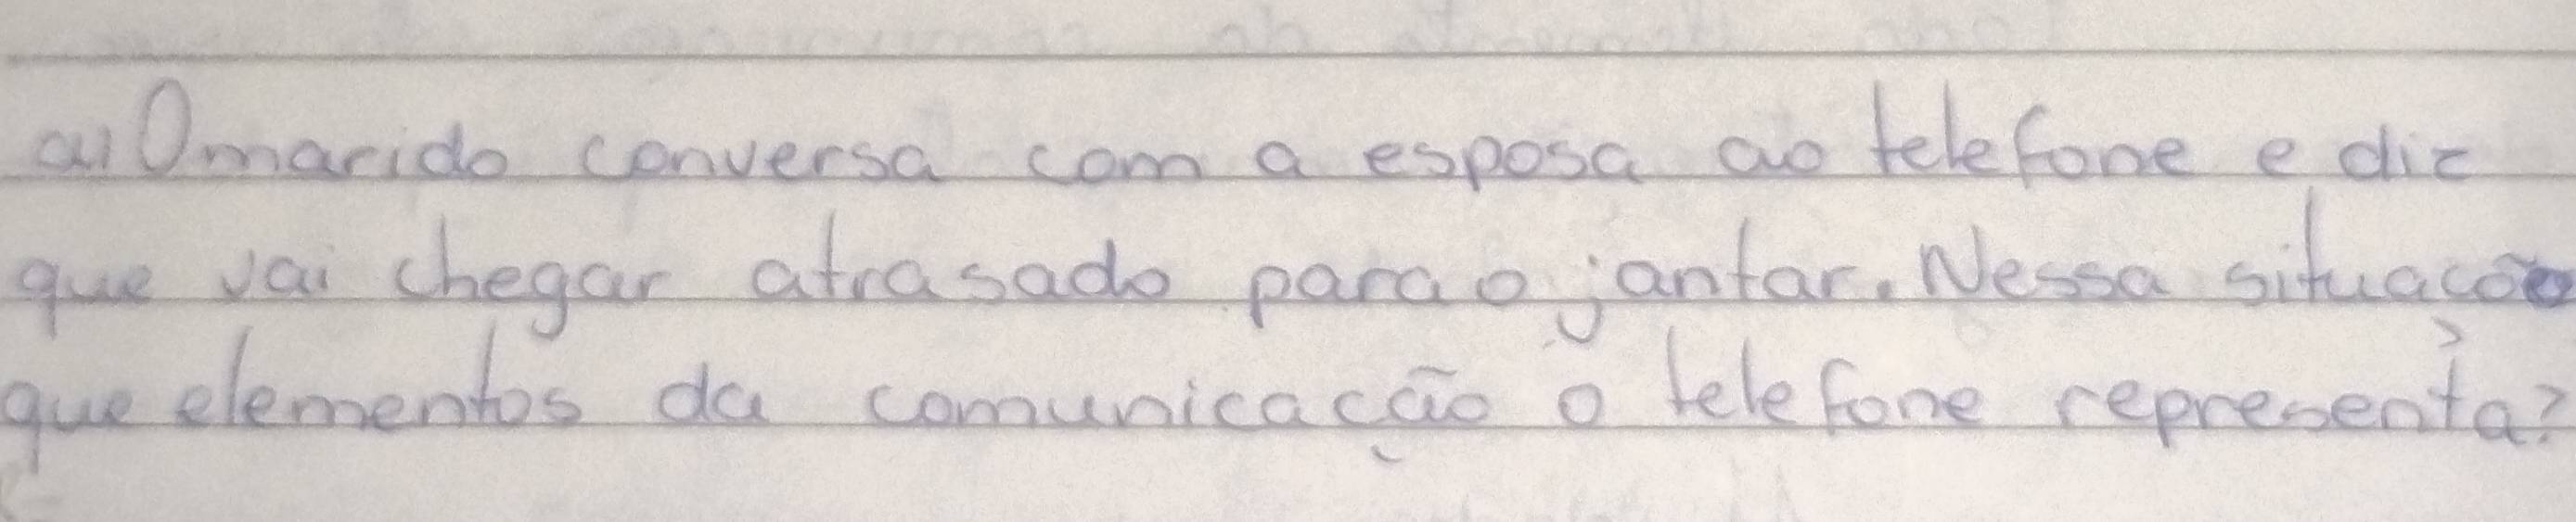 a) O marido conversa com a esposa ao telefone e diz
que vai chegar atrasado para o jantar. Nessa situação
que elementos da comunicação o telefone representa?